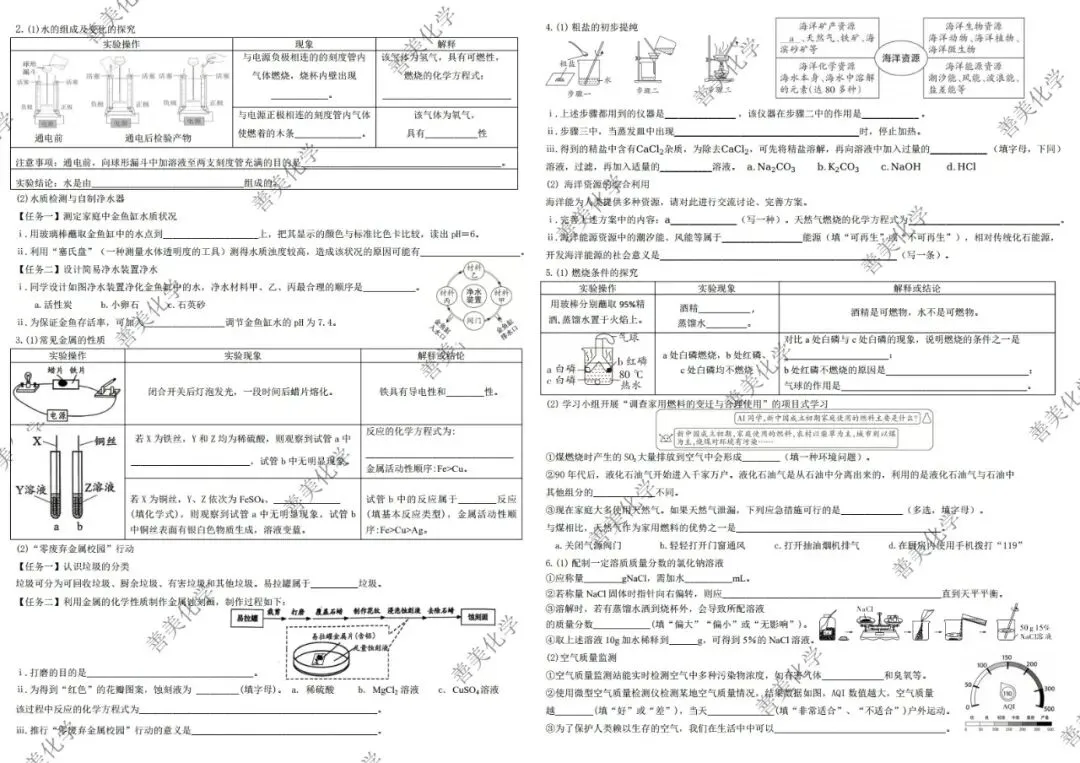 2.(1)水的组成及变化的探究
实验操作 现象 解释
球形漏斗 活塞 活塞 负极 正极 电源
通电前 通电后检验产物
与电源负极相连的的刻度管内气体燃烧,烧杯内壁出现
________。
该气体为氢气,具有可燃性,燃烧的化学方程式:
与电源正极相连的刻度管内气体使燃着的木条________。
该气体为氧气,
具有________性
注意事项:通电前,向球形漏斗中加溶液至两支刻度管充满的目的是________。
实验结论:水是由________组成的。
(2)水质检测与自制净水器
【任务一】测定家庭中金鱼缸水质状况
ⅰ.用玻璃棒蘸取金鱼缸中的水点到________上,把其显示的颜色与标准比色卡比较,读出pH=6。
ⅱ.利用“塞氏盘”(一种测量水体透明度的工具)测得水质浊度较高,造成该状况的原因可能有________。
【任务二】设计简易净水装置净水
ⅰ.同学设计如图净水装置净化金鱼缸中的水,净水材料甲、乙、丙最合理的顺序是________。
a.活性炭 b.小卵石 c.石英砂
ⅱ.为保证金鱼存活率,可加入________调节金鱼缸水的pH为7.4。
材料乙 材料丙 净水装置 材料甲 阀门 金鱼缸入水口 金鱼缸出水口
3.(1)常见金属的性质
实验操作 实验现象 解释或结论
蜡片 铁片
电源
闭合开关后灯泡发光,一段时间后蜡片熔化。
铁具有导电性和________性。
X 铜丝
Y溶液 Z溶液
a b
若X为铁丝,Y和Z均为稀硫酸,则观察到试管a中________,试管b中无明显现象。
反应的化学方程式为:
________
金属活动性顺序:Fe>Cu。
若X为铜丝,Y、Z依次为FeSO₄、________(填化学式),则观察到试管a中无明显现象,试管b中铜丝表面有银白色物质生成,溶液变蓝。
试管b中的反应属于________反应(填基本反应类型),金属活动性顺序:Fe>Cu>Ag。
(2)“零废弃金属校园”行动
【任务一】认识垃圾的分类
垃圾可分为可回收垃圾、厨余垃圾、有害垃圾和其他垃圾。易拉罐属于________垃圾。
【任务二】利用金属的化学性质制作金属蚀刻画,制作过程如下:
易拉罐 裁剪 打磨 覆盖石蜡 制作花纹 浸泡蚀刻液 去除石蜡 蚀刻画
易拉罐金属片(含铝)
足量蚀刻液
ⅰ.打磨的目的是________。
ⅱ.为得到“红色”的花瓣图案,蚀刻液为________(填字母)。 a. 稀硫酸 b. MgCl₂溶液 c. CuSO₄溶液
该过程中反应的化学方程式为________。
ⅲ.推行“零废弃金属校园”行动的意义是________。
4.(1)粗盐的初步提纯
粗盐 水
步骤一 步骤二 步骤三
海洋矿产资源
a、天然气、铁矿、海滨砂矿等
海洋生物资源
海洋动物、海洋植物、海洋微生物
海洋资源
海洋化学资源
海水本身、海水中溶解的元素(达80多种)
海洋能源资源
潮汐能、风能、波浪能、盐差能等
ⅰ.上述步骤都用到的仪器是________,该仪器在步骤二中的作用是________。
ⅱ.步骤三中,当蒸发皿中出现________时,停止加热。
ⅲ.得到的精盐中含有CaCl₂杂质,为除去CaCl₂,可先将精盐溶解,再向溶液中加入过量的________(填字母,下同)
溶液,过滤,再加入适量的________溶液。 a.Na₂CO₃ b.K₂CO₃ c.NaOH d.HCl
(2)海洋资源的综合利用
海洋能为人类提供多种资源,请对此进行交流讨论、完善方案。
ⅰ.完善上述方案中的内容:a________(写一种)。天然气燃烧的化学方程式为________。
ⅱ.海洋能源资源中的潮汐能、风能等属于________能源(填“可再生”或“不可再生”),相对传统化石能源,
开发海洋能源的社会意义是________(写一条)。
5.(1)燃烧条件的探究
实验操作 实验现象 解释或结论
用玻棒分别蘸取95%精酒,蒸馏水置于火焰上。
酒精________,
蒸馏水________。
酒精是可燃物,水不是可燃物。
气球
b红磷
a白磷 80℃
c白磷 热水
a处白磷燃烧,b处红磷、c处白磷均不燃烧
对比a处白磷与c处白磷的现象,说明燃烧的条件之一是________;
b处红磷不燃烧的原因是________;
气球的作用是________。
(2)学习小组开展“调查家用燃料的变迁与合理使用”的项目式学习
AI同学,新中国成立初期家庭使用的燃料主要是什么?
新中国成立初期,家庭使用的燃料,农村以柴草为主,城市则以煤为主,烧煤对环境有污染……
①煤燃烧时产生的SO₂大量排放到空气中会形成________(填一种环境问题)。
②90年代后,液化石油气开始进入千家万户。液化石油气是从石油中分离出来的,利用的是液化石油气与石油中
其他组分的________不同。
③现在家庭大多使用天然气。如果天然气泄漏,下列应急措施可行的是________(多选,填字母)。
与煤相比,天然气作为家用燃料的优势之一是________
a.关闭气源阀门 b.轻轻打开门窗通风 c.打开抽油烟机排气 d.在厨房内使用手机拨打“119”
6.(1)配制一定溶质质量分数的氯化钠溶液
①应称量________gNaCl,需加水________mL。
②若称量NaCl固体时指针向右偏转,则应________直到天平平衡。
③溶解时,若有蒸馏水洒到烧杯外,会导致所配溶液
的质量分数________(填“偏大”“偏小”或“无影响”)。
④取上述溶液10g加水稀释到________g,可得到5%的NaCl溶液。
NaCl
50g 15%
NaCl溶液
(2)空气质量监测
①空气质量监测站能实时检测空气中多种污染物浓度,如有毒气体________和臭氧等。
②使用微型空气质量检测仪检测某地空气质量情况,结果数据如图。AQI数值越大,空气质量
越________(填“好”或“差”),当天________(填“非常适合”、“不适合”)户外运动。
③为了保护人类赖以生存的空气,我们在生活中可以________。
0 50 100 150 200 300 500
150
AQI
善美化学